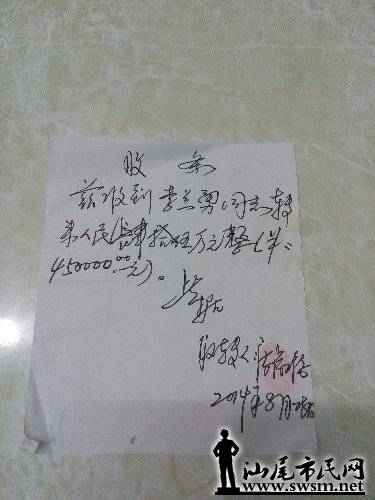 收 条
兹收到李兰勇同志转
来人民币肆拾伍万元整(单:
450000.00元)。
此据
2014年8月
汕尾市民网
www.swsm.net